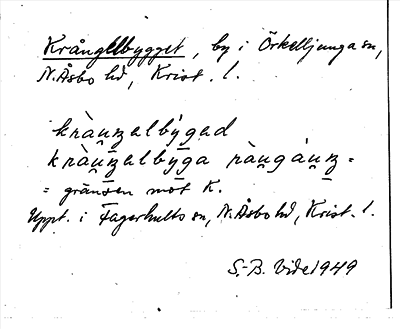 Krångelbygget, by i Örkelljunga sn,
N. Åsbo hd, Krist. l.
kràu̯ŋelbýged
kràu̯ŋelbȳga ràu̯gáu̯ŋ =
= gränsen mot K.
Uppt. i Fagerhults sn, N. Åsbo hd, Krist. l.
S.-B. Vide 1949